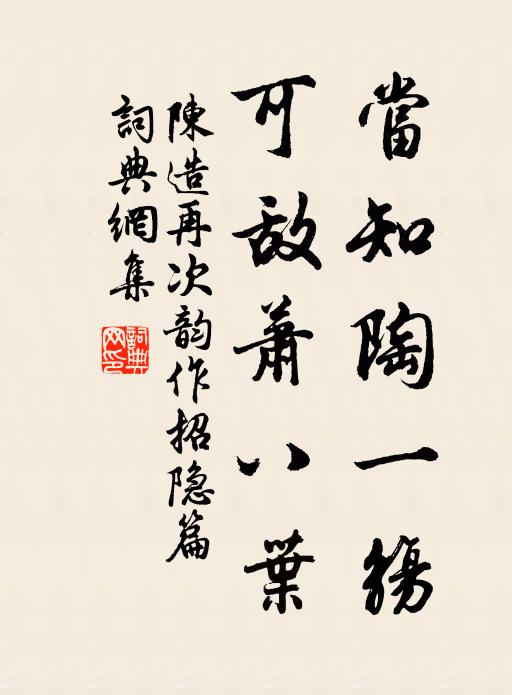 當知陶一觴
可敌萧八葉
陳造再次韵作招隐篇
詞典網集
詞典網印